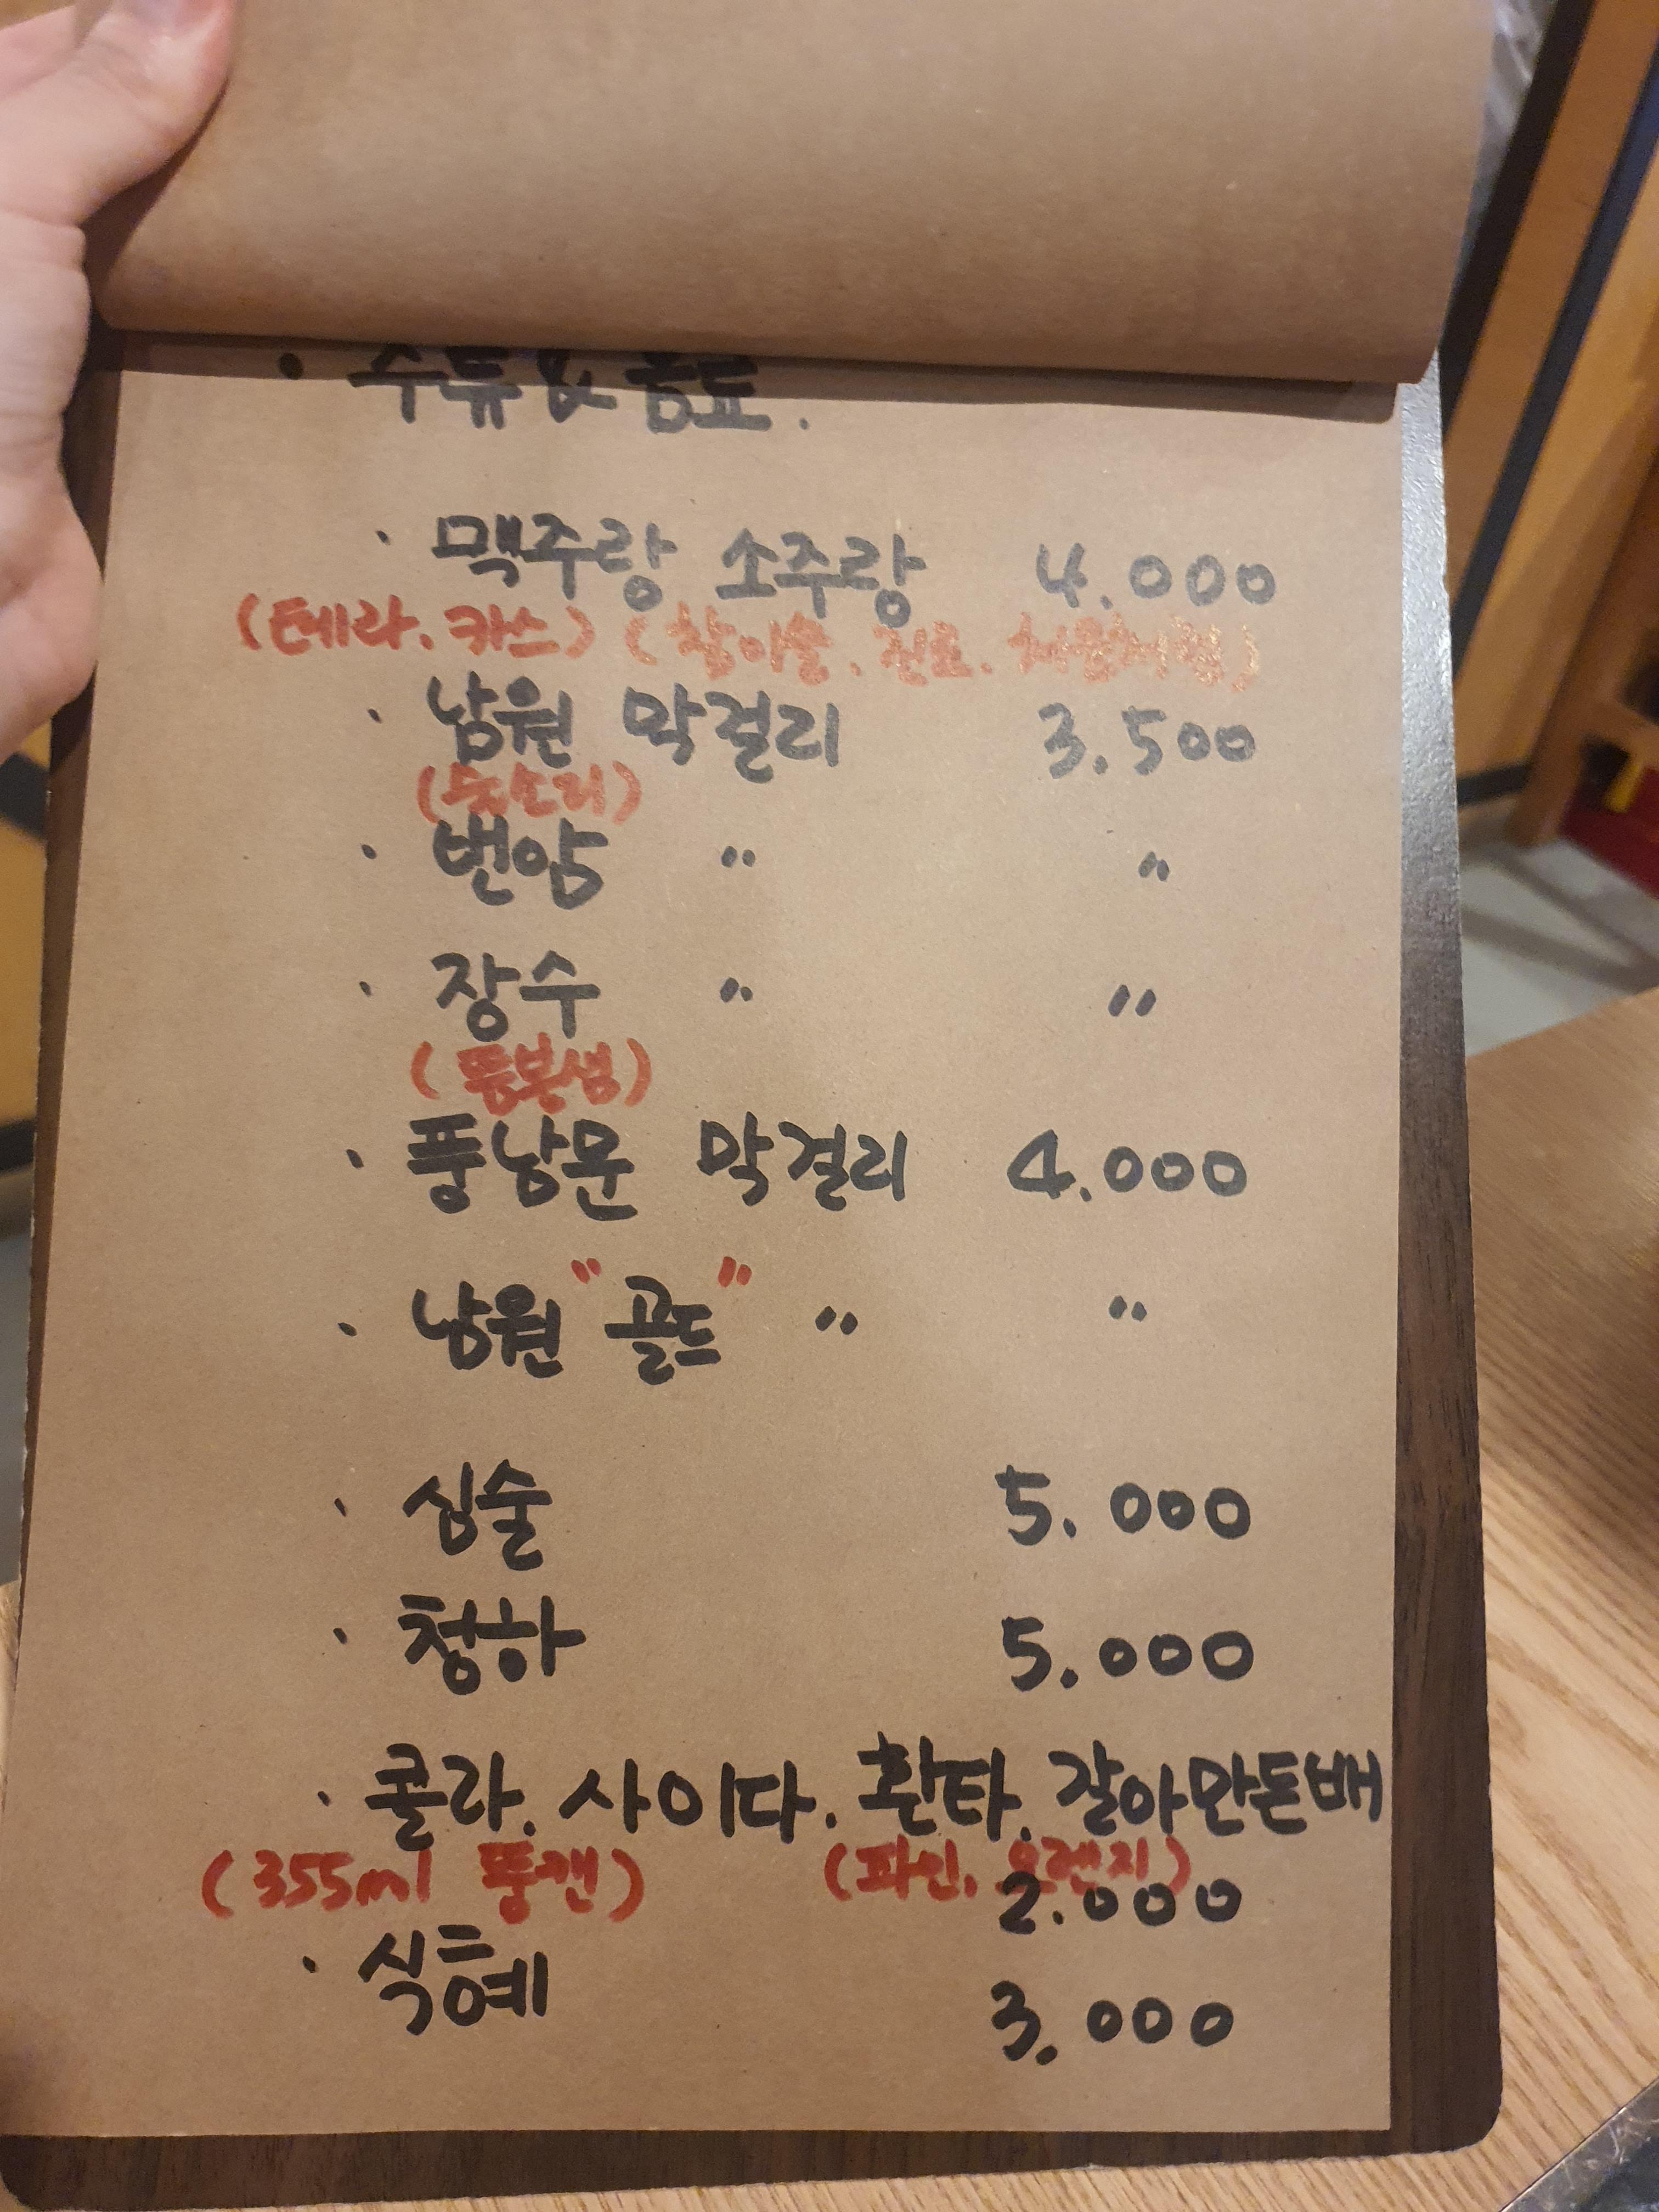 · 주류 & 음료.
· 맥주랑 소주랑 4.000
(테라. 카스) (참이슬. 진로. 처음처럼)
· 남원 막걸리 3.500
· 번암 〃 〃
· 장수 〃 〃
(뜸봉샘)
· 풍남문 막걸리 4.000
· 남원 "골드" 〃 〃
· 심술 5.000
· 청하 5.000
· 콜라. 사이다. 환타. 갈아만든배
(355ml 뚱캔) (파인. 오렌지) 2.000
· 식혜 3.000